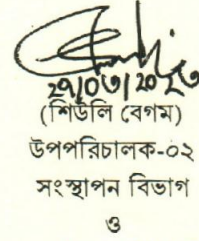 ২৭/০৩/২০২৩
(শিউলি বেগম)
উপপরিচালক-০২
সংস্থাপন বিভাগ
ও